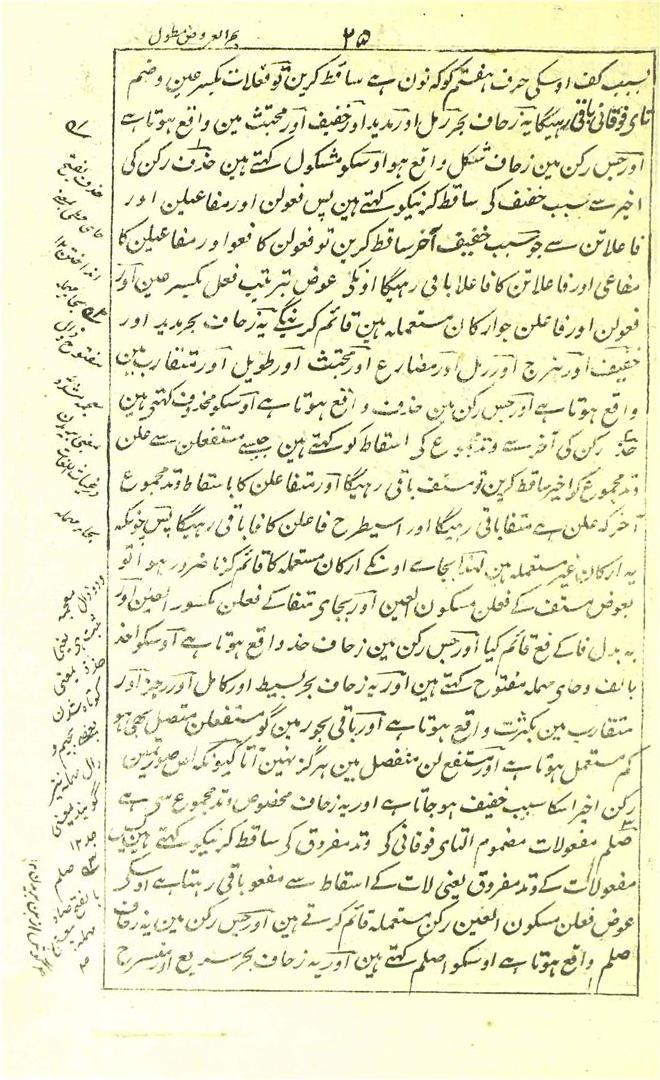 ۲۵
بحر العروض مطول
بسبب کف اوسکی حرف ہفتم کو کہ نون ہے ساقط کرین تو فعلات بکسر عین و ضم
تای فوقانی باقی رہیگا یہ زحاف بحر رمل اور مدید اور خفیف اور مجتث مین واقع ہوتا ہے
اور جس رکن مین زحاف شکل واقع ہو اوسکو مشکول کہتے ہین حذف رکن کی
اخیر سے سبب خفیف کی ساقط کرنیکو کہتے ہین پس فعولن اور مفاعیلن اور
فاعلاتن سے جو سبب خفیف آخر ساقط کرین تو فعولن کا فعو اور مفاعیلن کا
مفاعی اور فاعلاتن کا فاعلا باقی رہیگا اونکی عوض بترتیب فعل بکسر عین اور
فعولن اور فاعلن جو ارکان مستعملہ ہین قائم کرینگے یہ زحاف بحر مدید اور
خفیف اور ہزج اور رمل اور مضارع اور مجتث اور طویل اور متقارب مین
واقع ہوتا ہے اور جس رکن مین حذف واقع ہوتا ہے اوسکو محذوف کہتے ہین
حذذ رکن کی آخر سے وتد مجموع کی اسقاط کو کہتے ہین جیسے مستفعلن سے علن
وتد مجموع کو اخیر ساقط کرین تو مستف باقی رہیگا اور متفاعلن کا باسقاط وتد مجموع
آخر کہ علن ہے متفا باقی رہیگا اور اسیطرح فاعلن کا فا باقی رہیگا پس چونکہ
یہ ارکان غیر مستعملہ ہین لہذا بجاے اونکے ارکان مستعملہ کا قائم کرنا ضرور ہوا تو
بعوض مستف کے فعلن مسکون العین اور بجای متفا کے فعلن مکسور العین اور
بہ بدل فا کے فع قائم کیا اور جس رکن مین زحاف حذذ واقع ہوتا ہے اوسکو احذ
بالف و حای مہملہ مفتوح کہتے ہین اور یہ زحاف بحر بسیط اور کامل اور رجز اور
متقارب مین بکثرت واقع ہوتا ہے اور باقی بحور مین گو مستفعلن متصل بھی ہو
کم مستعمل ہوتا ہے اور مستفع لن منفصل مین ہرگز نہین آتا کیونکہ اس صورتمین
رکن اخیر اسکا سبب خفیف ہوجاتا ہے اور یہ زحاف مخصوص وتد مجموع سے ہے
صلم مفعولات مضموم التای فوقانی کی وتد مفروق کی ساقط کرنیکو کہتے ہین پس
مفعولات کے وتد مفروق یعنی لات کے اسقاط سے مفعو باقی رہتا ہے اوسکی
عوض فعلن مسکون العین رکن مستعملہ قائم کرتے ہین اور جس رکن مین یہ زحاف
صلم واقع ہوتا ہے اوسکو اصلم کہتے ہین اور یہ زحاف بحر سریع اور منسرح
حذف بفتح
انداختن ۱۲